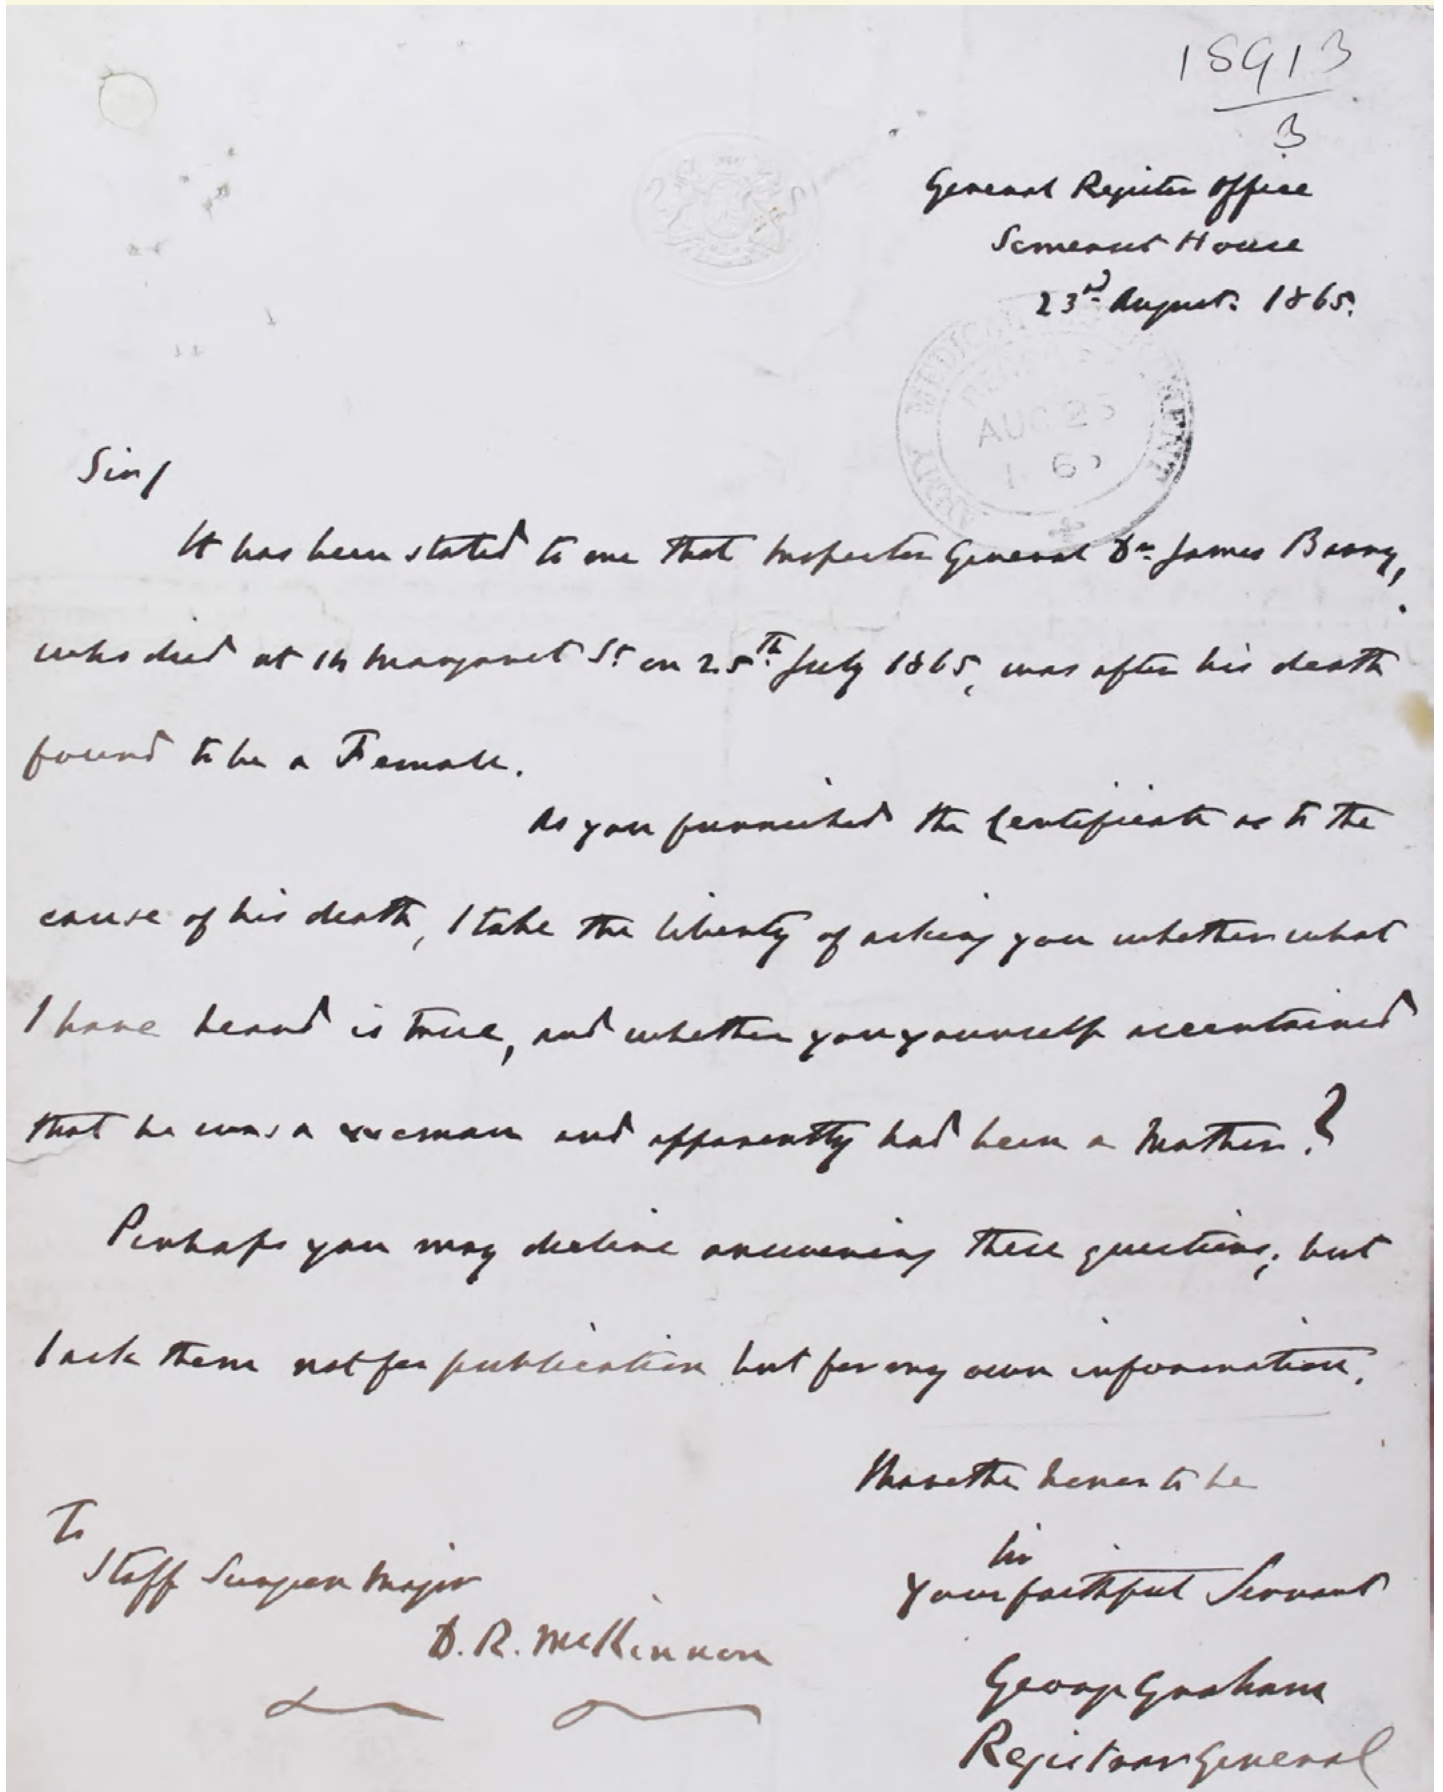 18913
3
General Register Office
Somerset House
23rd August. 1865.
ARMY MEDICAL DEPARTMENT
AUG 25
Sir/
It has been stated to me that Inspector General Dr James Barry,
who died at 14 Margaret St on 25th July 1865, was after his death
found to be a Female.
As you furnished the Certificate as to the
cause of his death, I take the liberty of asking you whether what
I have heard is true, and whether you yourself ascertained
that he was a woman and apparently had been a Mother?
Perhaps you may decline answering these questions; but
I ask them not for publication but for my own information.
I have the honor to be
Sir
Your faithful Servant
George Graham
Registrar General
To
Staff Surgeon Major
D. R. McKinnon